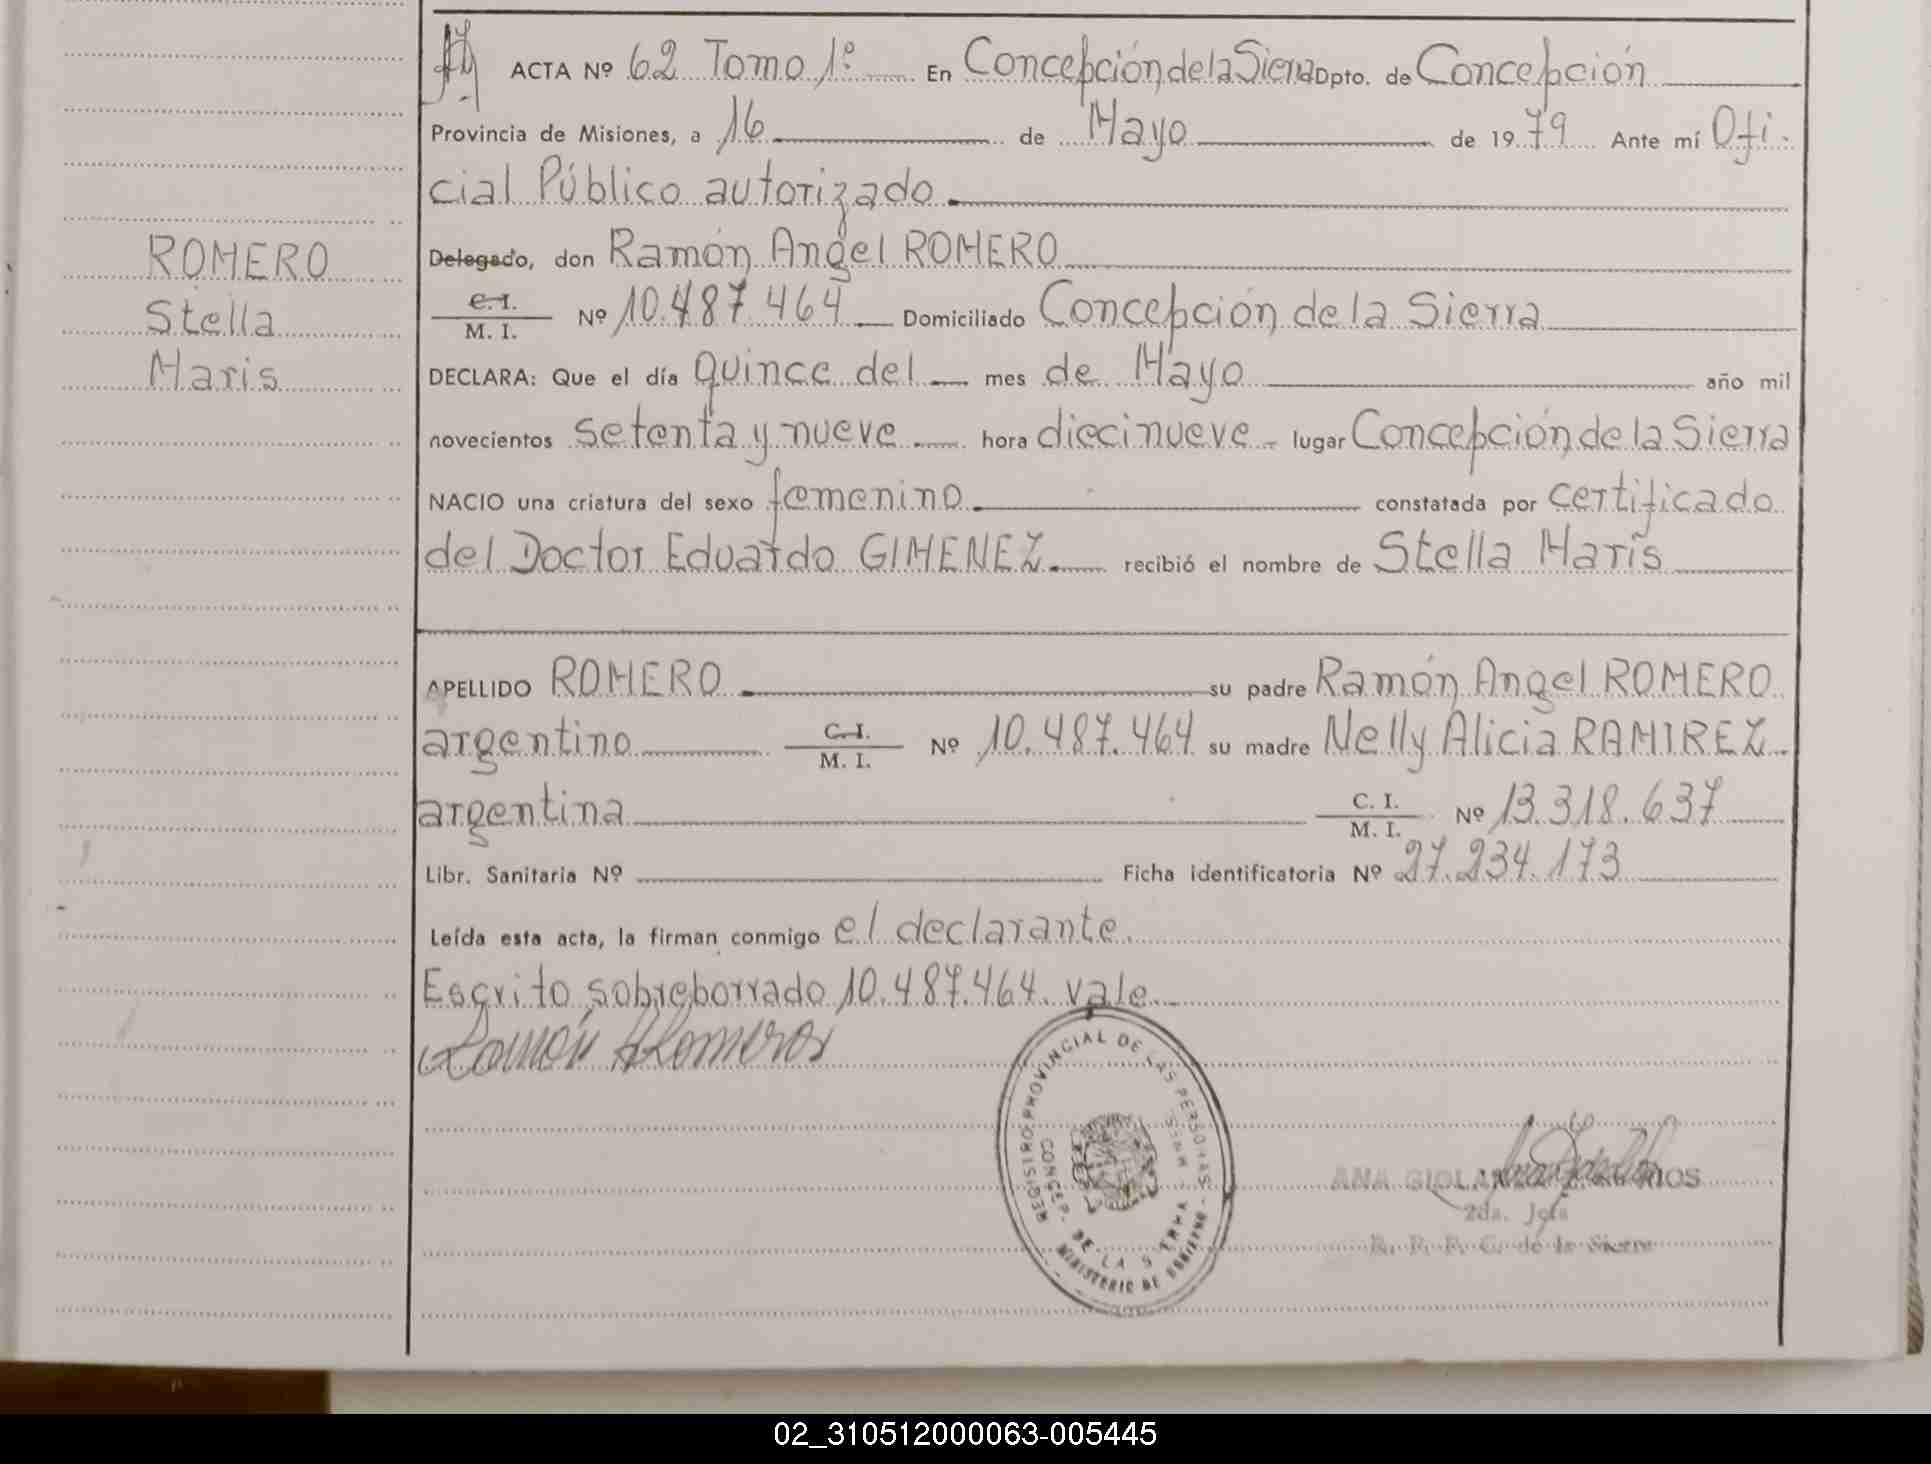 ROMERO
Stella
Maris
ACTA Nº 62 Tomo 1º En Concepción de la Sierra Dpto. de Concepción
Provincia de Misiones, a 16 de Mayo de 1979 Ante mí Ofi-
cial Público autorizado
Delegado, don Ramón Angel ROMERO
C. I.
M. I. Nº 10.487.464 Domiciliado Concepción de la Sierra
DECLARA: Que el día quince del mes de Mayo año mil
novecientos setenta y nueve hora diecinueve lugar Concepción de la Sierra
NACIO una criatura del sexo femenino constatada por certificado
del Doctor Eduardo GIMENEZ recibió el nombre de Stella Maris
APELLIDO ROMERO su padre Ramón Angel ROMERO
argentino C. I. M. I. Nº 10.487.464 su madre Nelly Alicia RAMIREZ
argentina C. I. M. I. Nº 13.318.637
Libr. Sanitaria Nº Ficha identificatoria Nº 27.234.173
Leída esta acta, la firman conmigo el declarante.
Escrito sobreborrado 10.487.464. vale
Ramón A Romero
REGISTRO PROVINCIAL DE LAS PERSONAS
CONCEP. DE LA SIERRA
MINISTERIO DE GOBIERNO
ANA
2da. Jefa
R. P. P. C. de la Sierra
02_310512000063-005445